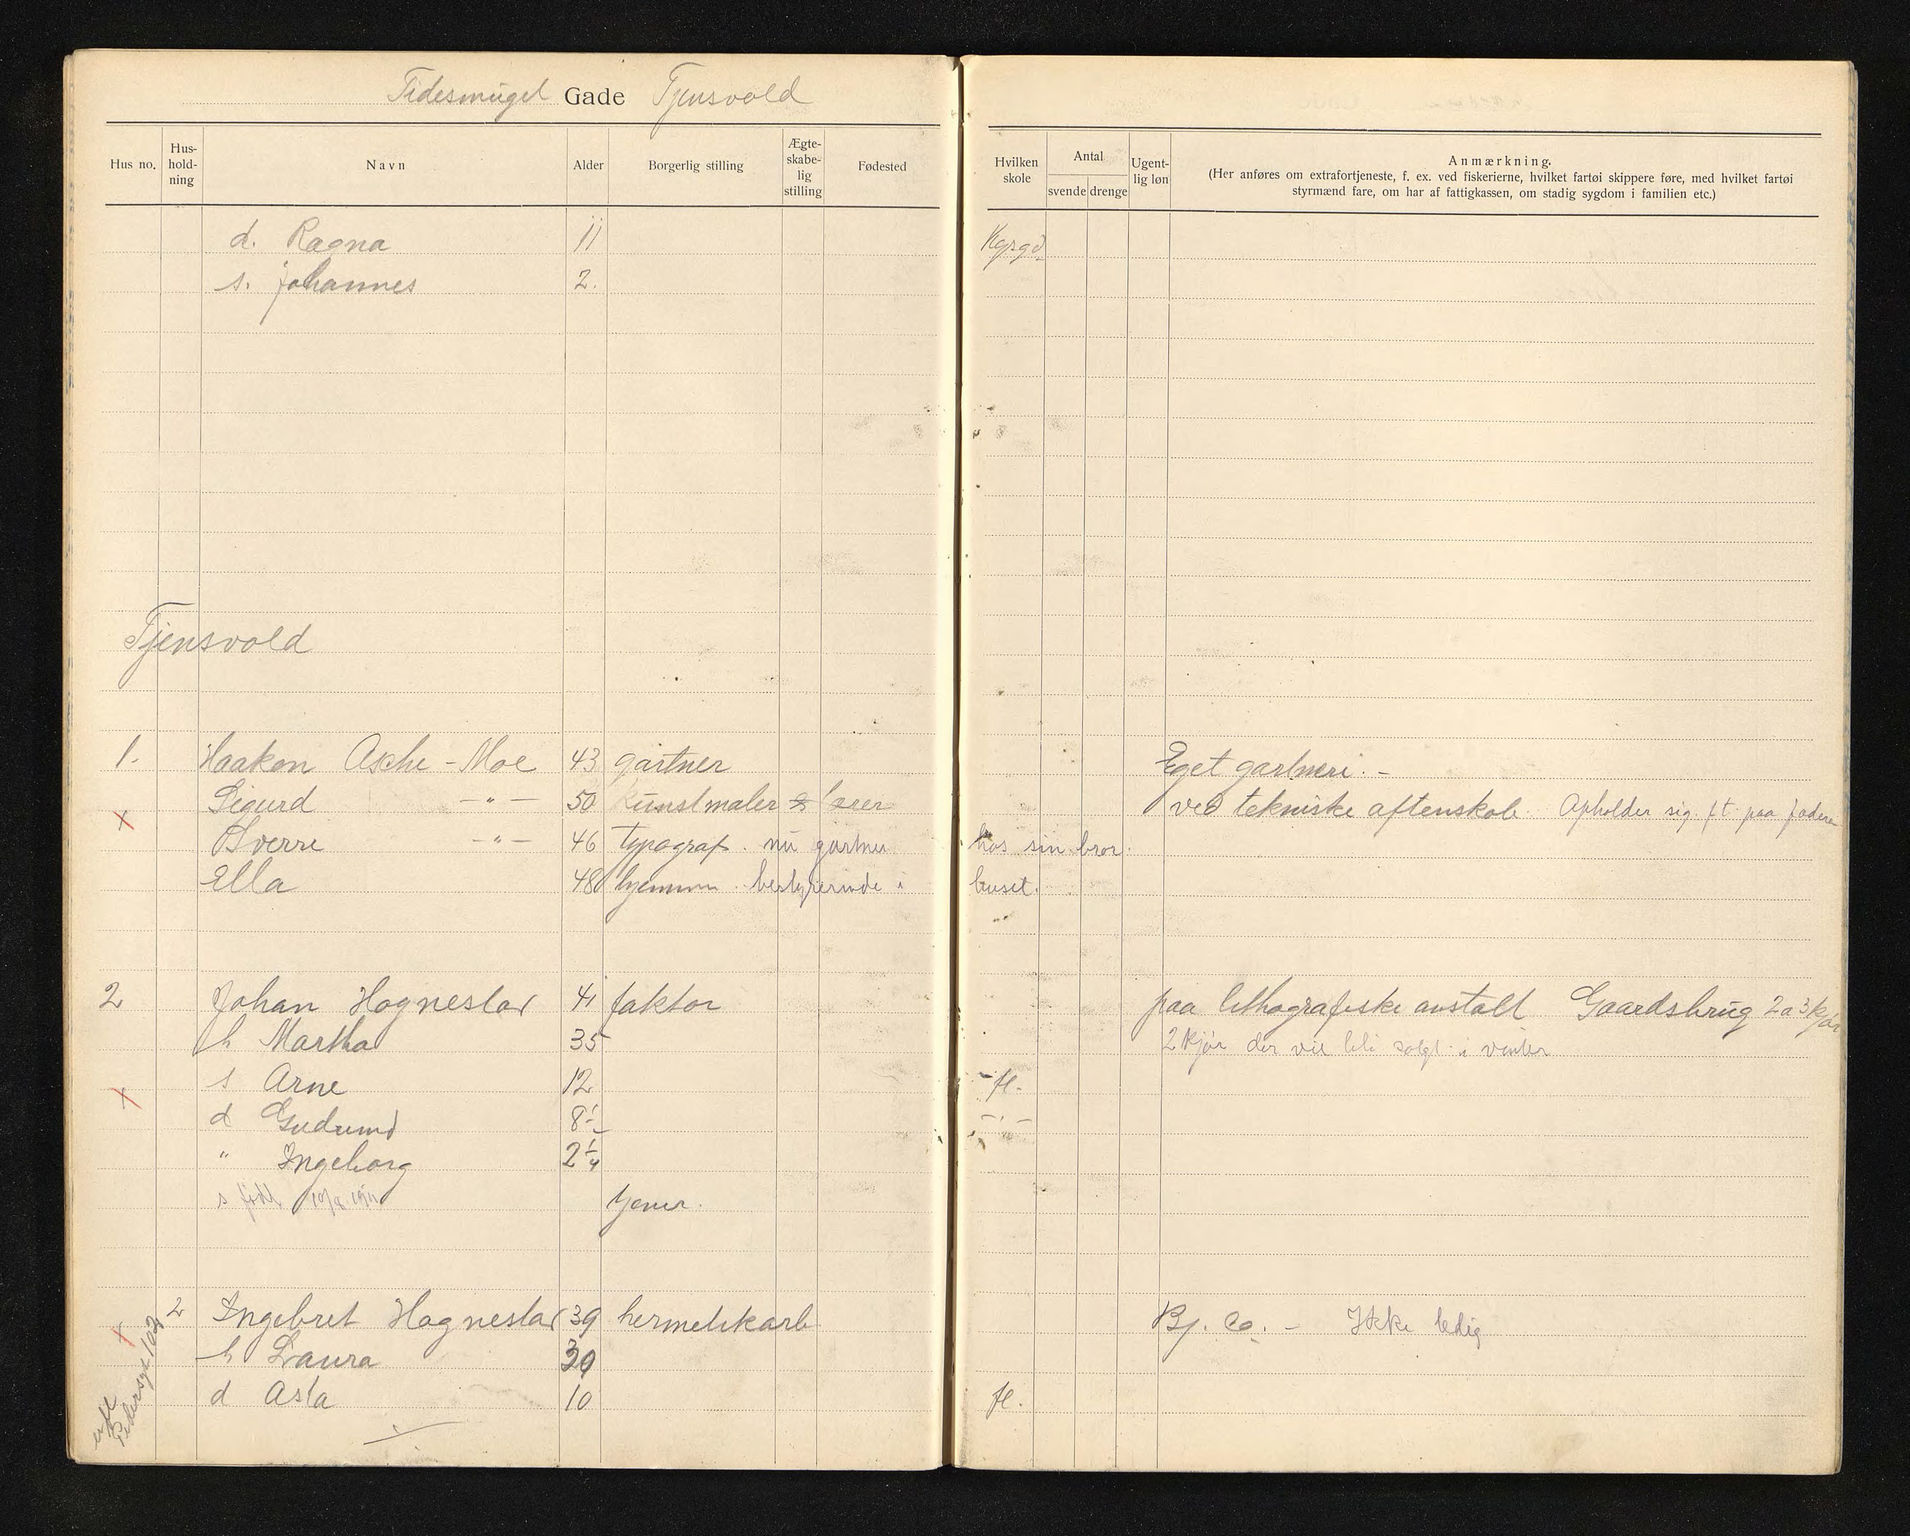 Tidesmuget Gade Tjensvold
Hus no. Hus-hold-ning Navn Alder Borgerlig stilling Ægte-skabe-lig stilling Fødested Hvilken skole Antal svende drenge Ugent-lig løn Anmærkning.
(Her anføres om extrafortjeneste, f. ex. ved fiskerierne, hvilket fartøi skippere føre, med hvilket fartøi
styrmænd fare, om har af fattigkassen, om stadig sygdom i familien etc.)
d. Ragna 11
s. Johannes 2.
Tjensvold
1. Haakon Asche-Moe 43 gartner Eget gartneri. -
Sigurd -"- 50 kunstmaler & lærer ved tekniske aftenskole. Opholder sig f.t. paa
Sverre -"- 46 typograf. nu gartner hos sin bror.
Ella 48 hjemme. bestyrerinde i huset.
2 Johan Hognestad 41 faktor paa lithografiske anstalt Gaardsbrug 2 a 3 kjør
h Martha 35 2 kjør der vil bli solgt i vinter
s Arne 12 fl.
d Gudrund 8½ -"-
" Ingeborg 2¼
s født
2 Ingebret Hognestad 39 hermetikarb Bj. Co. - Ikke ledig
h Laura 39
d Asta 10 fl.
Pedersgt 102